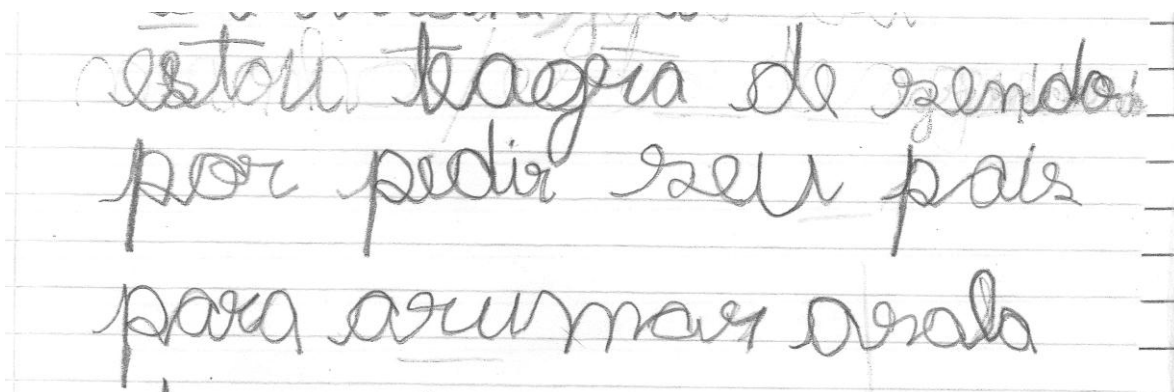 estou teagra de sendo
por pedir seu pais
para arumar asala